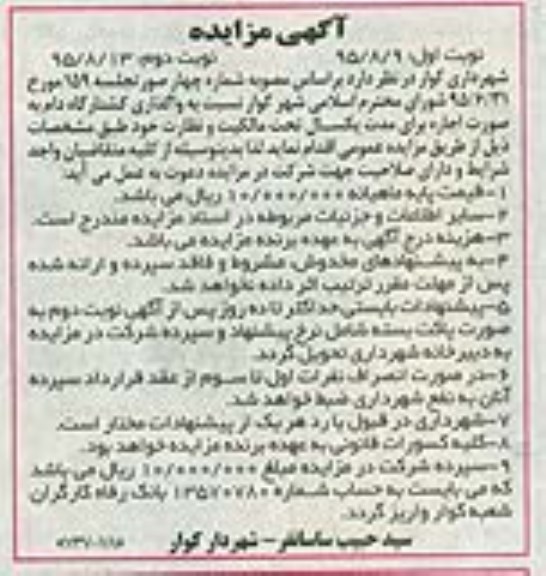 آگهی مزایده
نوبت اول: ۹۵/۸/۹ نوبت دوم: ۹۵/۸/۱۳
شهرداری کوار در نظر دارد براساس مصوبه شماره چهار صورتجلسه ۱۵۹ مورخ
۹۵/۶/۳۱ شورای محترم اسلامی شهر کوار نسبت به واگذاری کشتارگاه دام به
صورت اجاره برای مدت یکسال تحت مالکیت و نظارت خود طبق مشخصات
ذیل از طریق مزایده عمومی اقدام نماید لذا بدینوسیله از کلیه متقاضیان واجد
شرایط و دارای صلاحیت جهت شرکت در مزایده دعوت به عمل می آید:
۱-قیمت پایه ماهیانه ۱۰/۰۰۰/۰۰۰ ریال می باشد.
۲-سایر اطلاعات و جزئیات مربوطه در اسناد مزایده مندرج است.
۳-هزینه درج آگهی به عهده برنده مزایده می باشد.
۴-به پیشنهادهای مخدوش، مشروط و فاقد سپرده و ارائه شده
پس از مهلت مقرر ترتیب اثر داده نخواهد شد.
۵-پیشنهادات بایستی حداکثر تا ده روز پس از آگهی نوبت دوم به
صورت پاکت بسته شامل نرخ پیشنهاد و سپرده شرکت در مزایده
به دبیرخانه شهرداری تحویل گردد.
۶-در صورت انصراف نفرات اول تا سوم از عقد قرارداد سپرده
آنان به نفع شهرداری ضبط خواهد شد.
۷-شهرداری در قبول یا رد هر یک از پیشنهادات مختار است.
۸-کلیه کسورات قانونی به عهده برنده مزایده خواهد بود.
۹-سپرده شرکت در مزایده مبلغ ۱۰/۰۰۰/۰۰۰ ریال می باشد
که می بایست به حساب شماره ۱۳۵۷۰۷۸۰ بانک رفاه کارگران
شعبه کوار واریز گردد.
سید حبیب ساسانفر - شهردار کوار